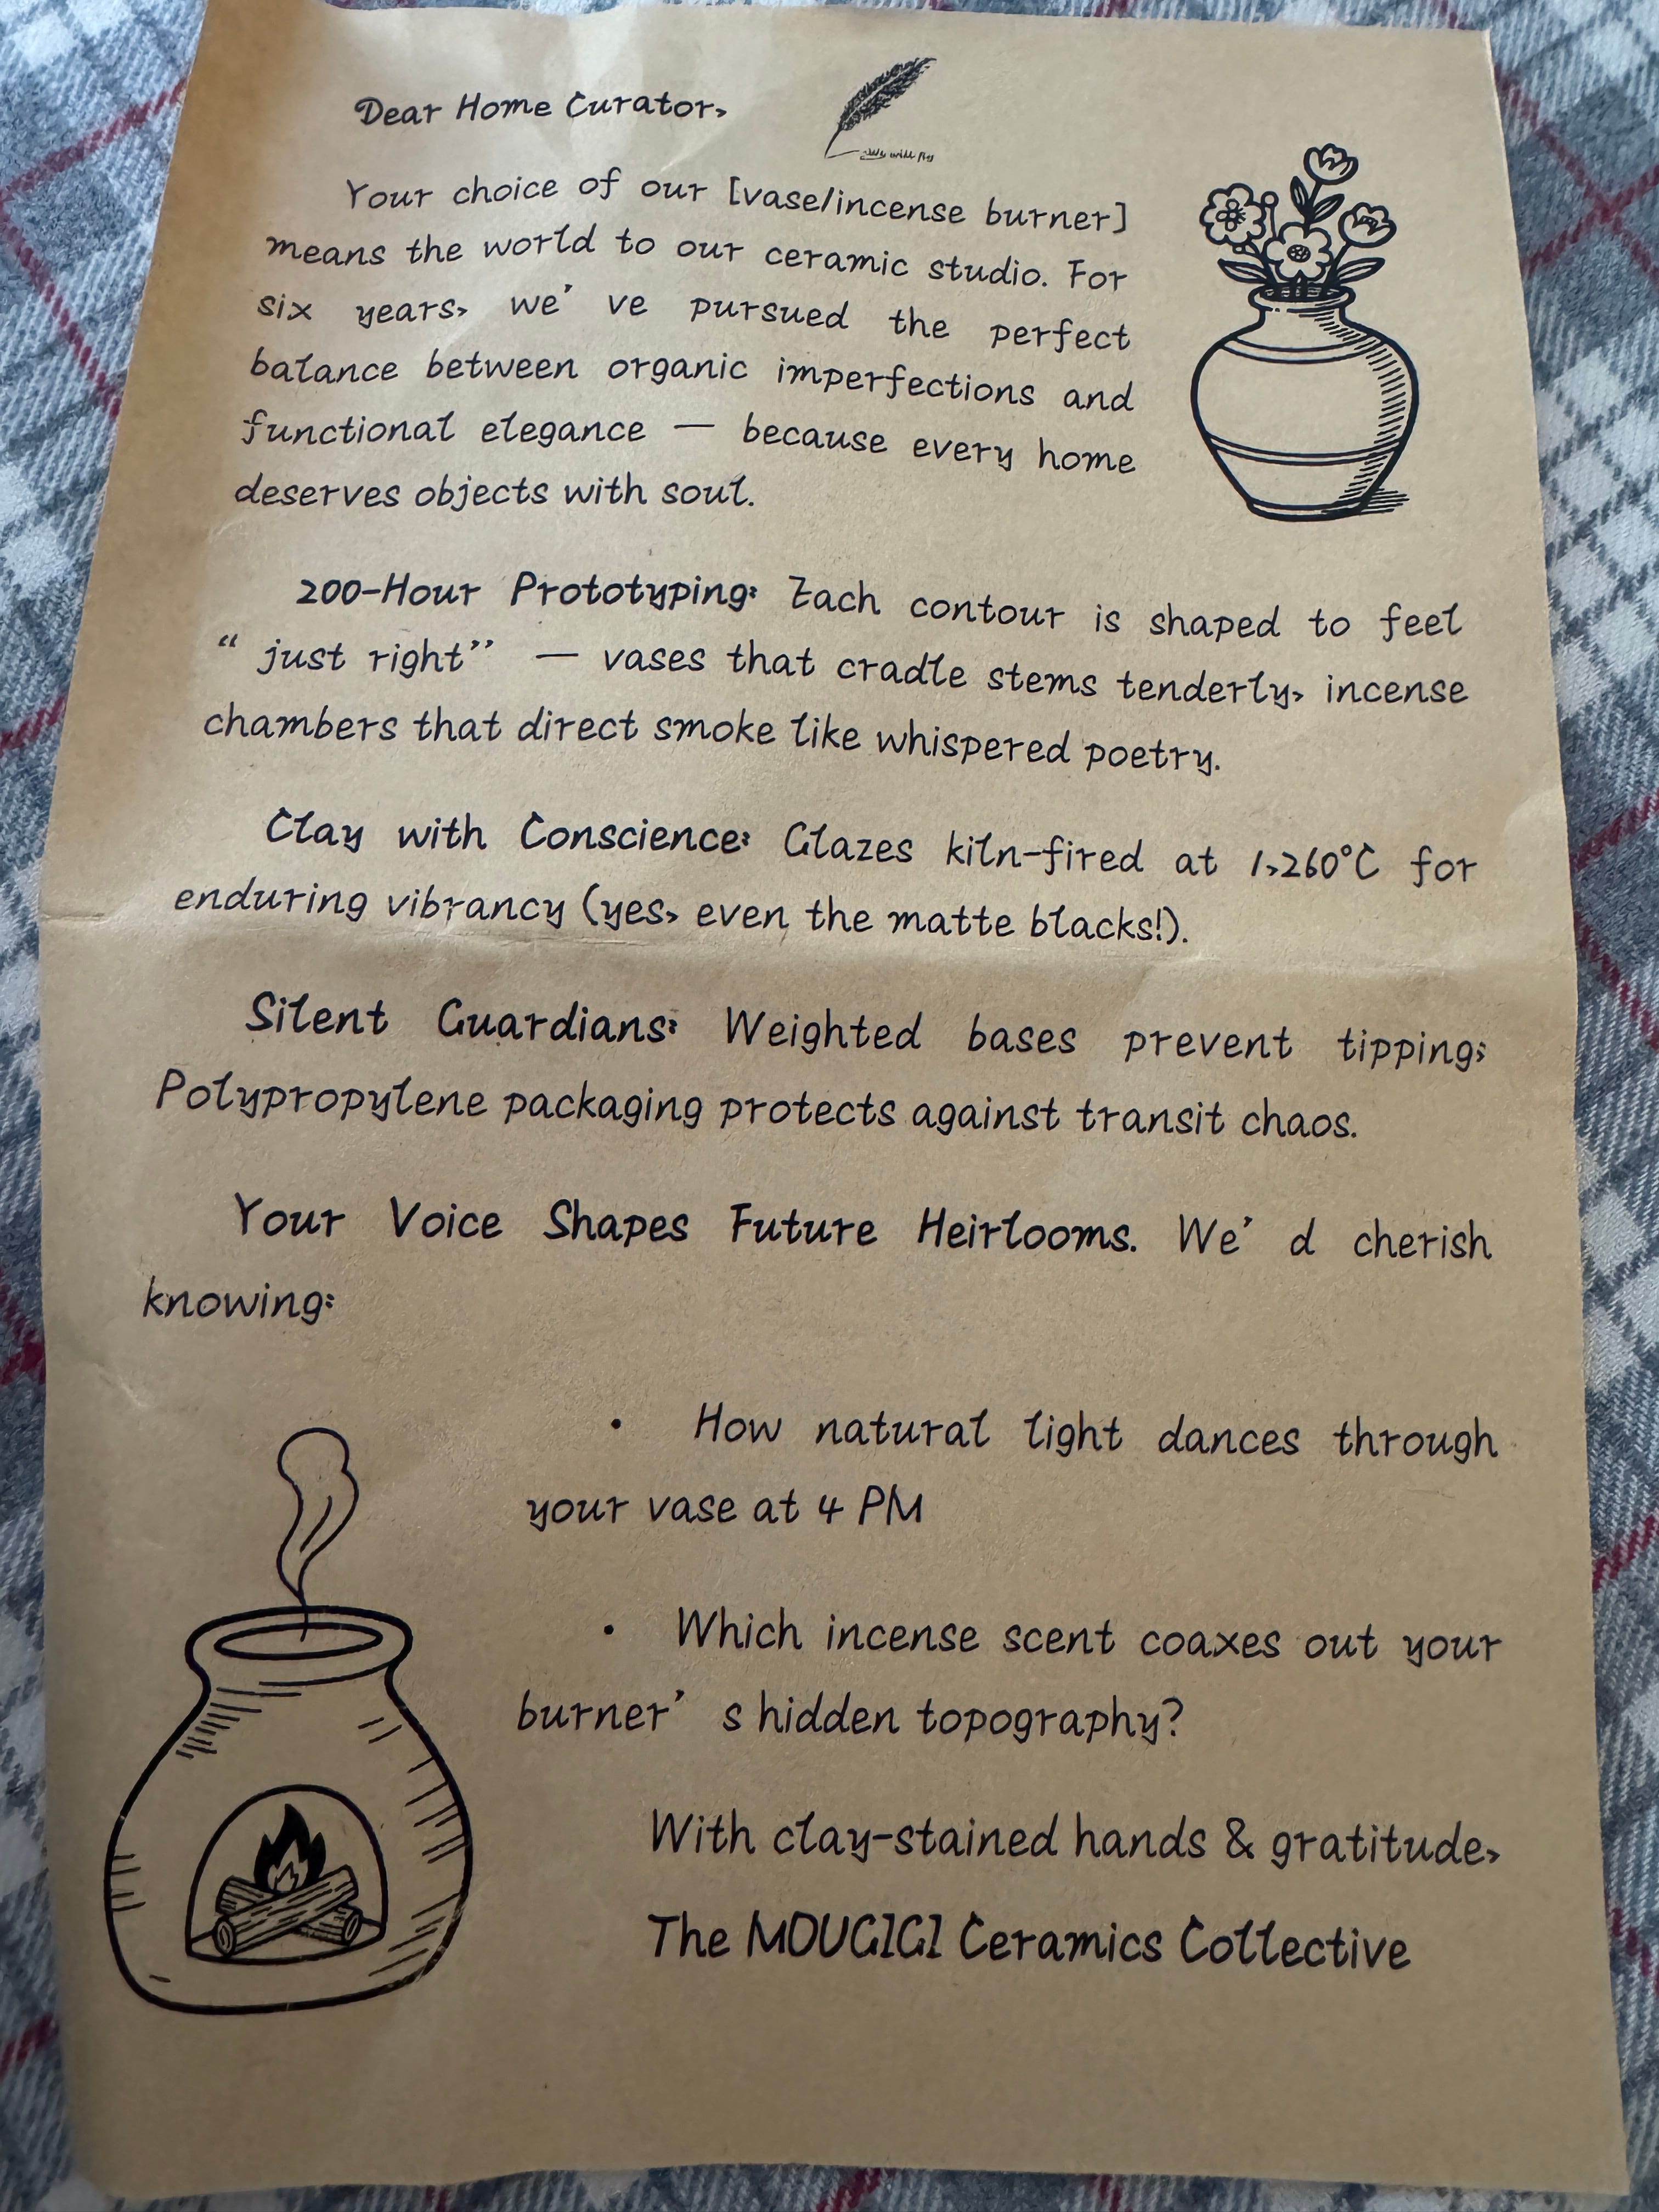 Dear Home Curator,
Your choice of our [vase/incense burner]
means the world to our ceramic studio. For
six years, we’ ve pursued the perfect
balance between organic imperfections and
functional elegance — because every home
deserves objects with soul.
200-Hour Prototyping: Each contour is shaped to feel
“ just right” — vases that cradle stems tenderly, incense
chambers that direct smoke like whispered poetry.
Clay with Conscience: Glazes kiln-fired at 1,260°C for
enduring vibrancy (yes, even the matte blacks!).
Silent Guardians: Weighted bases prevent tipping;
Polypropylene packaging protects against transit chaos.
Your Voice Shapes Future Heirlooms. We’ d cherish
knowing:
• How natural light dances through
your vase at 4 PM
• Which incense scent coaxes out your
burner’ s hidden topography?
With clay-stained hands & gratitude,
The MOUGIGI Ceramics Collective